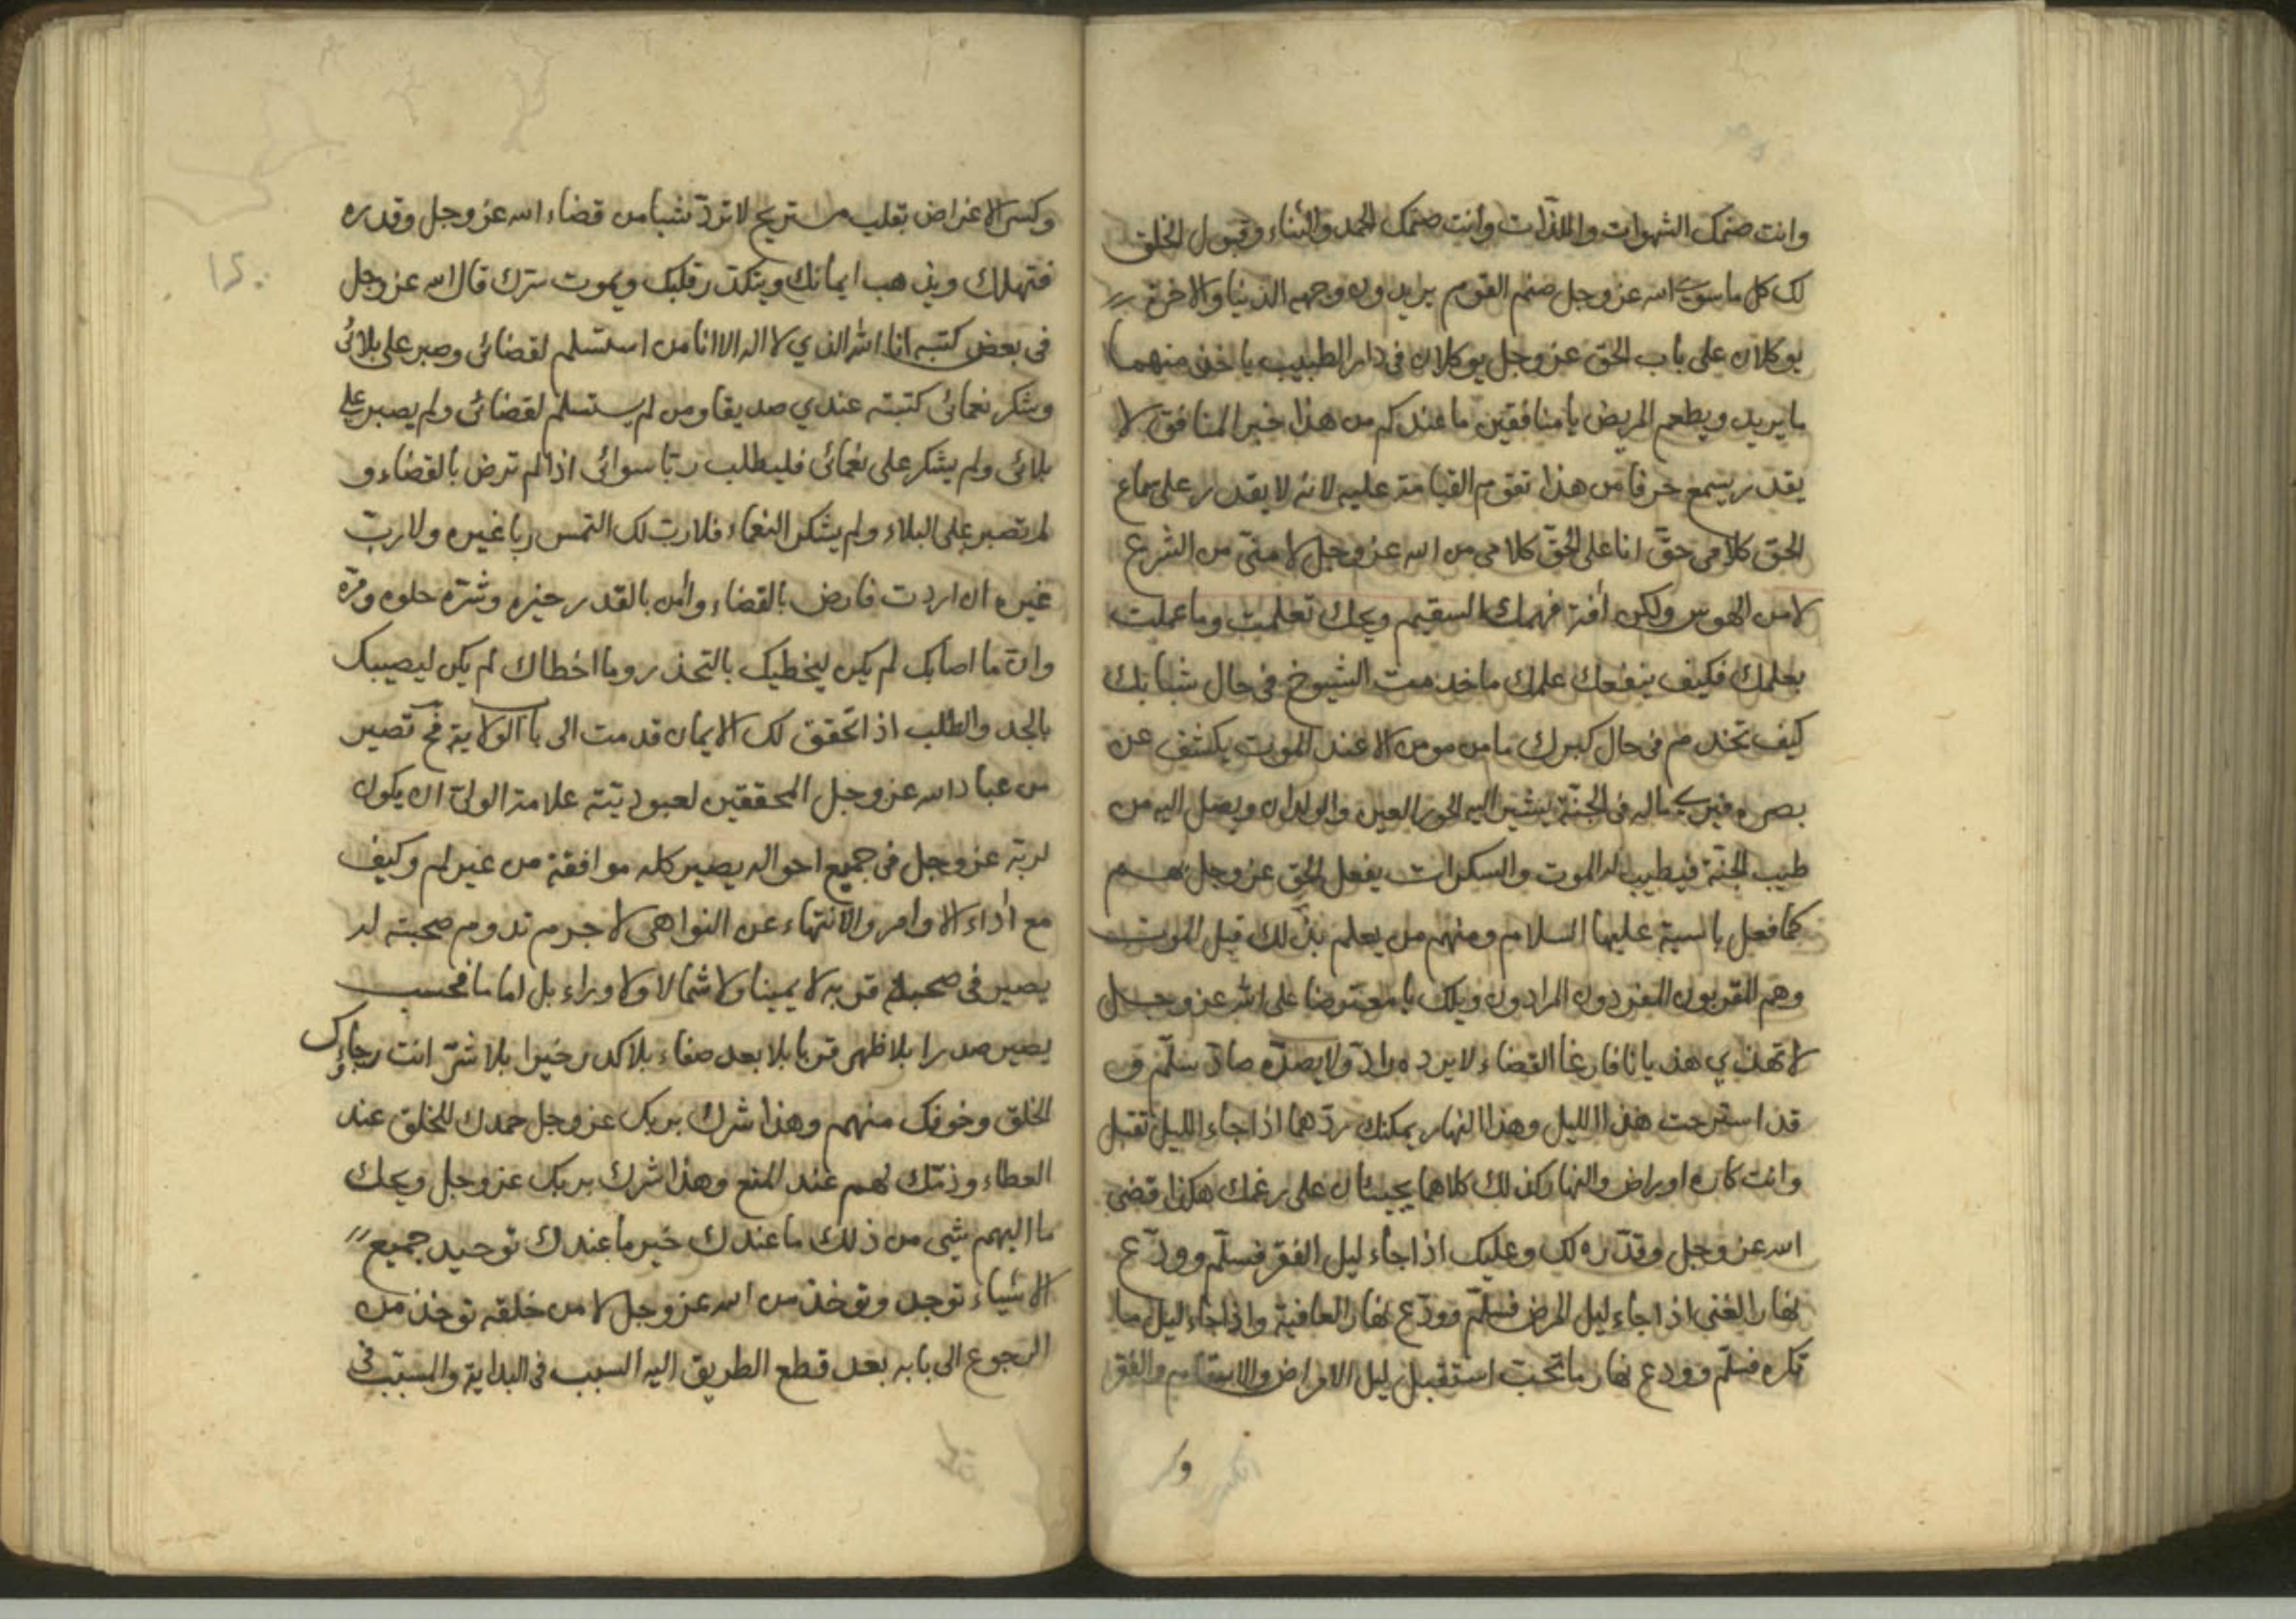 وانت صنمك الشهوات واللذّات وانت صنمك الحمد والثناء وقبول الخلق
لك كل ما سوى الله عز وجل صنم القوم يريدون وجهه الدنيا والاخرة
يوكلان على باب الحق عز وجل يوكلان في دار الطبيب ياخذ منهما
ما يريد ويطعم المريض يا منافقين ما عندكم من هذا خبر المنافق لا
يقدر يسمع حرفا من هذا تقوم القيامة عليه لانه لا يقدر على سماع
الحق كلامي حقّ انا على الحقّ كلامي من الله عز وجل لا منّي من الشرع
لا من الهوس ولكن افة فهمك السقيم ويحك تعلمت وما عملت
بعلمك فكيف ينفعك علمك ما خدمت الشيوخ في حال شبابك
كيف تخدم في حال كبرك ما من مومن الا عند الموت يكشف عن
بصره فيرى ماله في الجنّة يشير اليه الحور العين والولدان ويصل اليه من
طيب الجنّة فيطيب له الموت والسكرات يفعل الحق عز وجل بهم
كما فعل باسية عليها السلام ومنهم من يعلم بذلك قبل الموت
وهم المقربون المفردون المرادون ويلك يا معترضا على الله عز وجل
لا تهذي هذيانا فارغا القضاء لا يرده رادّ ولا يصدّه صادّ سلّم و
قد استرحت هذا الليل وهذا النهار يمكنك ردّهما اذا جاء الليل تقبل
وانت كاره او راض والنهار كذلك كلاهما يجيئان على رغمك هكذا قضى
الله عز وجل وقدّره لك وعليك اذا جاء ليل الفقر فسلّم وودّع
نهار الغنى اذا جاء ليل المرض فسلّم وودّع نهار العافية واذا جاء ليل ما
تكره فسلّم وودع نهار ما تحب استقبل ليل الامراض والاسقام والفقر
وكسر
وكسر الاعراض بقلب مستريح لا تردّ شيا من قضاء الله عز وجل وقدره
١٥٠
فتهلك ويذهب ايمانك ويتكدّر قلبك ويموت سرك قال الله عز وجل
في بعض كتبه انا الله الذي لا اله الا انا من استسلم لقضائي وصبر على بلائي
وشكر نعمائي كتبته عندي صديقا ومن لم يستسلم لقضائي ولم يصبر على
بلائي ولم يشكر على نعمائي فليطلب ربّا سوائي اذا لم ترض بالقضاء و
لم تصبر على البلاء ولم يشكر النعماء فلا ربّ لك التمس ربا غيره ولا ربّ
غيره ان اردت فارض بالقضاء وامن بالقدر خيره وشرّه حلوه ومرّه
وانّ ما اصابك لم يكن ليخطيك بالتحذر وما اخطاك لم يكن ليصيبك
بالجد والطلب اذا تحقق لك الايمان قدمت الى باب الولاية فح تصير
من عباد الله عز وجل المحققين لعبوديّته علامة الوليّ ان يكون
لربّه عز وجل في جميع احواله يصير كله موافقة من غير لم وكيف
مع اداء الاوامر والانتهاء عن النواهي لا جرم تدوم صحبته له
يصير في صحبة قربه لا يمينا ولا شمالا ولا وراء بل اماما فحسب
يصير صدرا بلا ظهر قربا بلا بعد صفاء بلا كدر خيرا بلا شرّ انت رجاؤك
الخلق وخوفك منهم وهذا شرك بربك عز وجل حمدك للخلق عند
العطاء وذمّك لهم عند المنع وهذا شرك بربك عز وجل ويحك
ما اليهم شي من ذلك ما عندك خير ما عندك توحيد جميع
الاشياء توجد وتوخذ من الله عز وجل لا من خلقه توخذ من
الرجوع الى بابه بعد قطع الطريق اليه السبب في البداية والمسبّب في